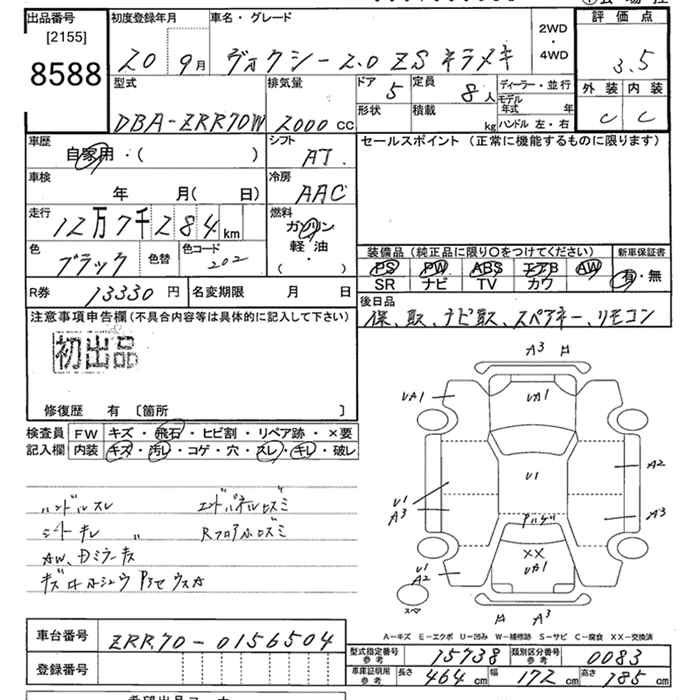 出品番号 初度登録年月 車名・グレード 評価点
[2155]
8588
20 9月 ヴォクシー 2.0 ZS キラメキ 2WD・4WD 3.5
型式 排気量 ドア 5 定員 8人 ディーラー・並行 外装 内装
DBA-ZRR70W 2000 CC 形状 積載 kg モデル年式 年 ハンドル 左・右 C C
車歴 自家用・( ) シフト AT セールスポイント (正常に機能するものに限ります)
車検 年 月( 日) 冷房 AAC
走行 12万7千284 km 燃料 ガソリン 軽油・( )
色 ブラック 色替 色コード 202
装備品 (純正品に限り〇をつけてください) 新車保証書
PS PW ABS エアB AW 有・無
SR ナビ TV カワ
R券 13330円 名変期限 月 日
後日品
保、取、ナビ取、スペアキー、リモコン
注意事項申告欄(不具合内容等は具体的に記入して下さい)
初出品
修復歴 有 〔箇所 〕
検査員 FW キズ・飛石・ヒビ割・リペア跡・×要
記入欄 内装 キズ・汚レ・コゲ・穴・スレ・キレ・破レ
ハンドルスレ エンドパネルヒズミ
シートキレ Rフロアヒズミ
AW、Dミラーキズ
A3
UA1 UA1
U1 A2
U1
A3 A3
XX
U1 UA1
A2
スペア
A3
A-キズ E-エクボ U-凹み W-補修跡 S-サビ C-腐食 XX-交換済
車台番号 ZRR70-0156504
登録番号
型式指定番号 参考 15738 類別区分番号 参考 0083
車庫証明用 参考 長さ 464 cm 幅 172 cm 高さ 185 cm